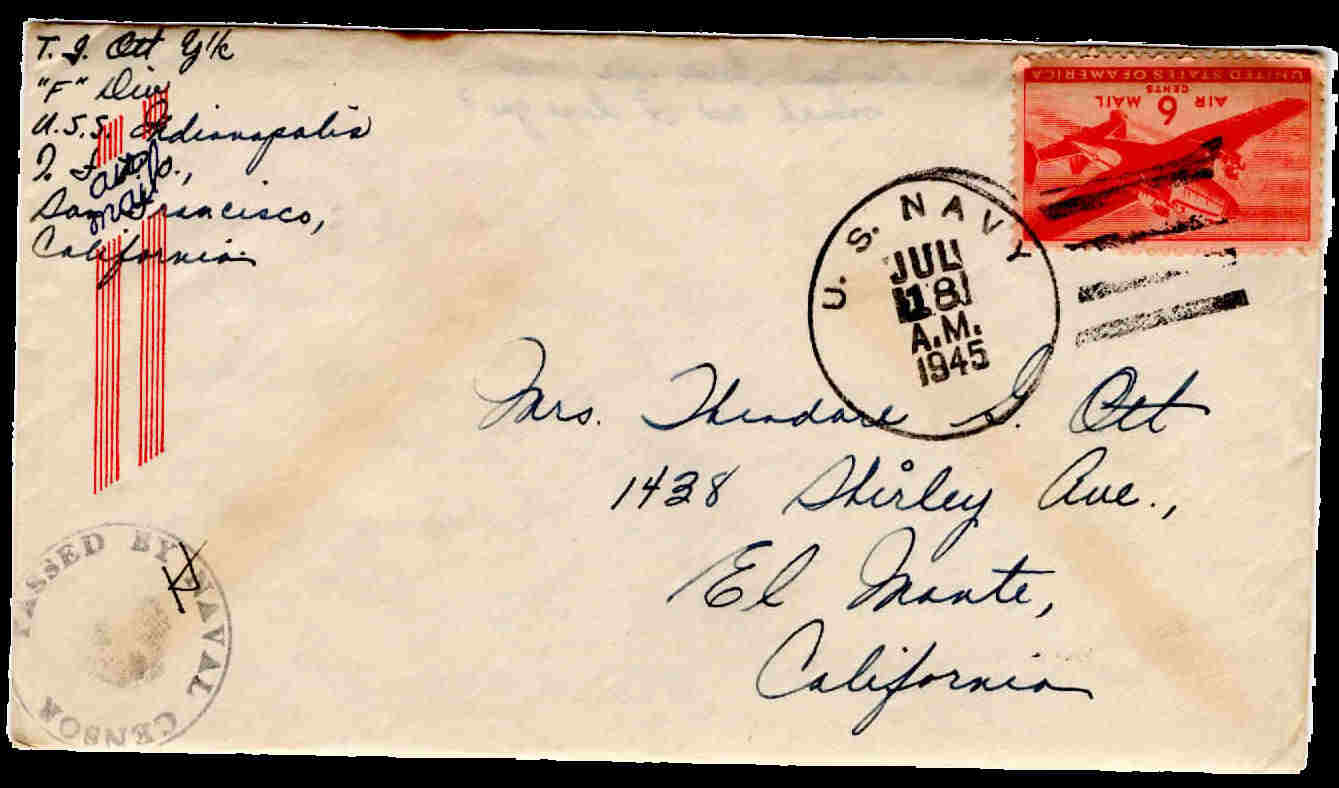 T. G. Ott Y1/c
"F" Div
U.S.S. Indianapolis
San Francisco,
California
air
mail
UNITED STATES OF AMERICA
6
CENTS
AIR MAIL
U. S. NAVY
JUL
18
A.M.
1945
Mrs. Theodore G. Ott
1438 Shirley Ave.,
El Monte,
California
PASSED BY NAVAL CENSOR